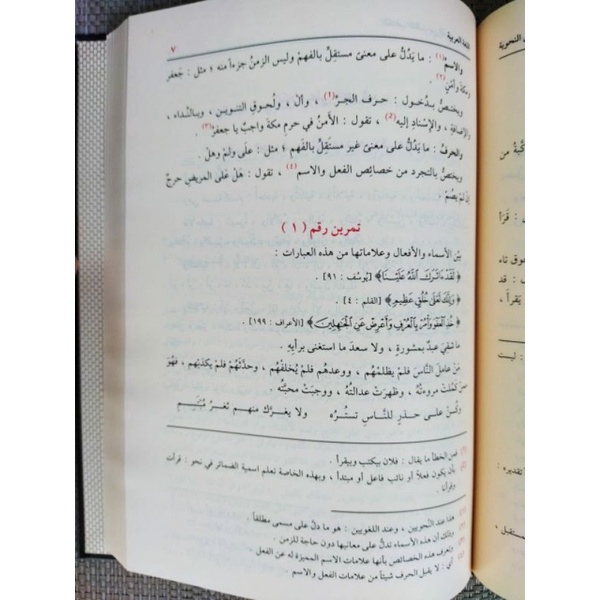 اللغة العربية
٧
والاسم(١) : ما يَدُلُّ على معنى مستقِلٍّ بالفهمِ وليس الزمنُ جزءاً منه ؛ مثل : جَعفر
ومكة وأَمْنٍ(٢) .
ويختصُّ بـدُخـول : حـرف الجـرِّ(١) ، وأل ، ولُحـوقِ التنـويـن ، وبـالنِّـداء ،
والإضافةِ ، والإسنادِ إليه(٥) ، تقول : الأَمنُ في حرمِ مكةَ واجبٌ يا جعفرُ(٣) .
والحرفُ : ما يَدُلُّ على معنىً غيرِ مستَقِلٍّ بالفَهمِ ؛ مثل : على ولمْ وهل .
ويختصُّ بالتجرد من خصائصِ الفعل والاسم(٤) ، تقول : هَلْ عَلى المريضِ حرجٌ
إنْ لمْ يصُمْ ؟
تمرين رقم ( ١ )
بَيِّن الأسماء والأفعال وعلاماتها من هذه العبارات :
﴿لَقَدْ ءَاثَرَكَ اللَّهُ عَلَيْنَا﴾ [يُوسُف : ٩١] .
﴿وَإِنَّكَ لَعَلَىٰ خُلُقٍ عَظِيمٍ﴾ [القلم : ٤] .
﴿خُذِ الْعَفْوَ وَأْمُرْ بِالْعُرْفِ وَأَعْرِضْ عَنِ الْجَاهِلِينَ﴾ [الأعراف : ١٩٩] .
ما شَقِيَ عبدٌ بمشورةٍ ، ولا سعدَ ما استغنى برأيِهِ .
مَنْ عاملَ النَّاسَ فلمْ يظلِمْهُم ، ووعدهم فلم يُخلفْهُم ، وحدَّثَهُمْ فلم يكذبْهُم ، فهُوَ
ممن كَمُلتْ مروءتُهُ ، وظهرَتْ عدالتُهُ ، ووجبَتْ محبتُه .
وكُنْ علـى حـذرٍ للنَّـاسِ تستُـرُه ولا يغـرَّكَ منهـم ثغـرُ مُبْتَسِـم
فمن الخطأ ما يقال : فلان بيكتب وبيقرأ .
بأن يكون فعلاً أو نائب فاعل أو مبتدأ ، وبهذه الخاصة تعلم اسمية الضمائر في نحو : قرأت
وقرأنا .
هذا عند النحويين ، وعند اللغويين : هو ما دلَّ على مسمى مطلقاً .
وذلك أن هذه الأسماء تدلُّ على معانيها دون حاجة للزمن .
وتعرف هذه الخصائص بأنها علامات الاسم المميزة له عن الفعل .
أي : لا يقبل الحرف شيئاً من علامات الفعل والاسم .